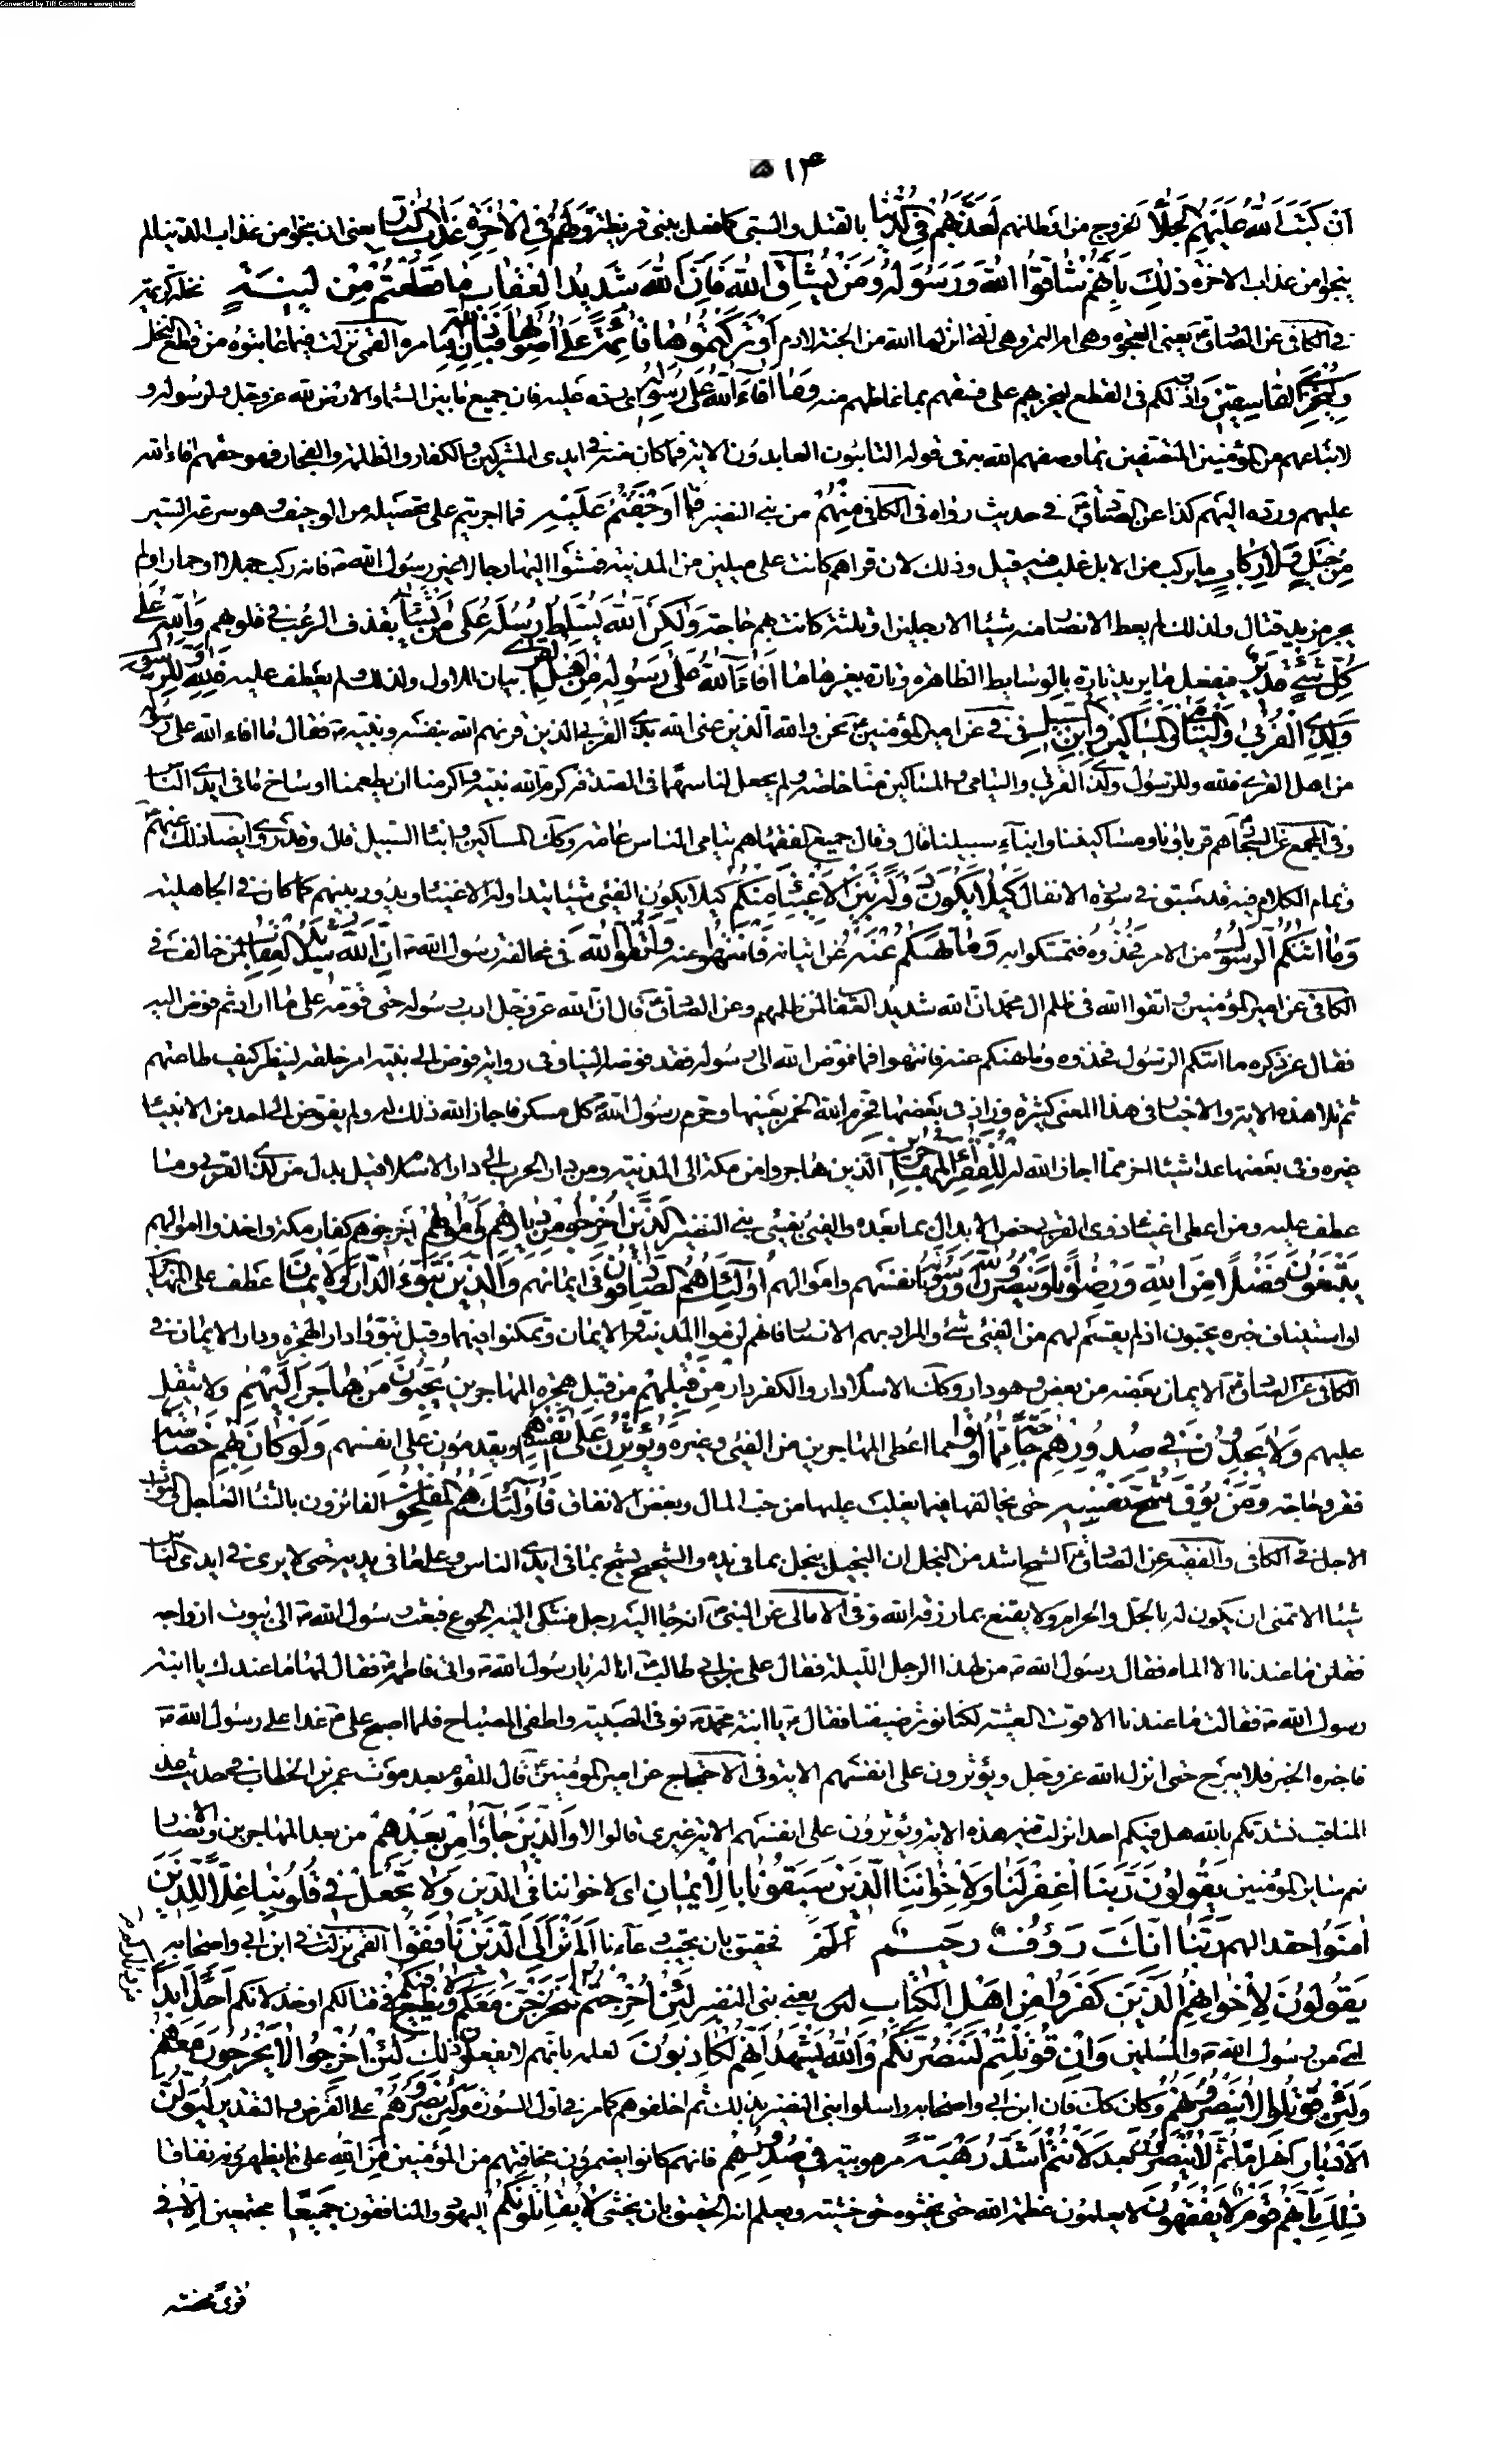 Converted by Tiff Combine - unregistered
۵۱۴
اَنْ كَتَبَ اللّهُ عَلَيْهِمُ الْجَلاءَ الخروج من اوطانهم لَعَذَّبَهُمْ فِي الدُّنْيا بالقتل والسبى كما فعل ببنى قريظة وَلَهُمْ فِي الْاخِرَةِ عَذابُ النّارِ يعنى ان نجوا من عذاب الدنيا لم
ينجوا من عذاب الاخرة ذلِكَ بِاَنَّهُمْ شاقُّوا اللّهَ وَرَسُولَهُ وَمَنْ يُشاقِّ اللّهَ فَاِنَّ اللّهَ شَدِيدُ الْعِقابِ ما قَطَعْتُمْ مِنْ لِينَةٍ نخلة كريمة
فى الكافى عن الصادق ع يعنى العجوة وهى ام التمر وهى التى انزلها الله من الجنة لادم اَوْ تَرَكْتُمُوها قائِمَةً عَلى اُصُولِها فَبِاِذْنِ اللّهِ فبامره القمى نزلت فيما عاتبوه من قطع النخل
وَلِيُخْزِيَ الْفاسِقِينَ واذن لكم فى القطع ليخزيهم على فسقهم بما غاظهم منه وَما اَفاءَ اللّهُ عَلى رَسُولِهِ اى رده عليه فان جميع ما بين السماء والارض لله عز وجل ولرسوله و
لاتباعهم من المؤمنين المتصفين بما وصفهم الله به فى قوله التائبون العابدون الاية فما كان منه فى ايدى المشركين والكفار والظلمة والفجار فهو حقهم افاء الله
عليهم ورده اليهم كذا عن الصادق ع فى حديث رواه فى الكافى مِنْهُمْ من بنى النضير فَما اَوْجَفْتُمْ عَلَيْهِ فما اجريتم على تحصيله من الوجيف وهو سرعة السير
مِنْ خَيْلٍ وَلا رِكابٍ ما يركب من الابل غلب فيه قيل وذلك لان قراهم كانت على ميلين من المدينة فمشوا اليها رجالا غير رسول الله ص فانه ركب جملا او حمارا ولم
يجر مزيد قتال ولذلك لم يعط الانصار منه شيئا الا رجلين او ثلثة كانت بهم حاجة وَلكِنَّ اللّهَ يُسَلِّطُ رُسُلَهُ عَلى مَنْ يَشاءُ بقذف الرعب فى قلوبهم وَاللّهُ عَلى
كُلِّ شَيْءٍ قَدِيرٌ فيفعل ما يريد تارة بالوسايط الظاهرة وتارة بغيرها ما اَفاءَ اللّهُ عَلى رَسُولِهِ مِنْ اَهْلِ الْقُرى بيان للاول ولذلك لم يعطف عليه فَلِلّهِ وَلِلرَّسُولِ
وَلِذِي الْقُرْبى وَالْيَتامى وَالْمَساكِينِ وَابْنِ السَّبِيلِ فى عن امير المؤمنين ع نحن والله الذين عنى الله بذى القربى الذين قرنهم الله بنفسه ونبيه ص فقال ما افاء الله على رسوله
من اهل القرى فلله وللرسول ولذى القربى واليتامى والمساكين منا خاصة ولم يجعل لنا سهما فى الصدقة كرم الله نبيه واكرمنا ان يطعمنا اوساخ ما فى ايدى الناس
وفى المجمع عن السجاد هم قرباؤنا ومساكيننا وابناء سبيلنا قال وقال جميع الفقهاء هم يتامى الناس عامة وكذلك المساكين وابناء السبيل قال وقد روى ايضا ذلك عنهم ع
وتمام الكلام فيه قد سبق فى سورة الانفال كَيْ لا يَكُونَ دُولَةً بَيْنَ الْاَغْنِياءِ مِنْكُمْ كيلا يكون الفىء شيئا يتداوله الاغنياء ويدور بينهم كما كان فى الجاهلية
وَما اتاكُمُ الرَّسُولُ من الامر فَخُذُوهُ فتمسكوا به وَما نَهاكُمْ عَنْهُ عن اتيانه فَانْتَهُوا عنه وَاتَّقُوا اللّهَ فى مخالفة رسول الله ص اِنَّ اللّهَ شَدِيدُ الْعِقابِ لمن خالف فى
الكافى عن امير المؤمنين ع اتقوا الله فى ظلم ال محمد ان الله شديد العقاب لمن ظلمهم وعن الصادق ع قال ان الله عز وجل ادب رسوله حتى قومه على ما اراد ثم فوض اليه
فقال عز ذكره ما اتيكم الرسول فخذوه وما نهيكم عنه فانتهوا فما فوض الله الى رسوله فقد فوضه الينا وفى رواية فوض الى نبيه امر خلقه لينظر كيف طاعتهم
ثم تلا هذه الاية والاخبار فى هذا المعنى كثيرة وزاد فى بعضها فحرم الله الخمر بعينها وحرم رسول الله ص كل مسكر فاجاز الله ذلك له ولم يفوض الى احد من الانبياء
غيره وفى بعضها عد اشياء اخر مما اجاز الله له لِلْفُقَراءِ الْمُهاجِرِينَ الذين هاجروا من مكة الى المدينة ومن دار الحرب الى دار الاسلام قيل بدل من لذى القربى وما
عطف عليه ومن اعطى اغنياء ذوى القربى خص الابدال بما بعده والفىء بفىء بنى النضير الَّذِينَ اُخْرِجُوا مِنْ دِيارِهِمْ وَاَمْوالِهِمْ اخرجهم كفار مكة واخذوا اموالهم
يَبْتَغُونَ فَضْلاً مِنَ اللّهِ وَرِضْواناً وَيَنْصُرُونَ اللّهَ وَرَسُولَهُ بانفسهم واموالهم اُولئِكَ هُمُ الصّادِقُونَ فى ايمانهم وَالَّذِينَ تَبَوَّءُوا الدّارَ وَالْاِيمانَ عطف على المهاجرين
او استيناف خبره يحبون اذ لم يقسم لهم من الفىء شىء والمراد بهم الانصار فانهم لزموا المدينة والايمان وتمكنوا فيهما وقيل تبوؤا دار الهجرة ودار الايمان فى
الكافى عن الصادق ع الايمان بعضه من بعض وهو دار وكذلك الاسلام دار والكفر دار مِنْ قَبْلِهِمْ من قبل هجرة المهاجرين يُحِبُّونَ مَنْ هاجَرَ اِلَيْهِمْ ولا يثقل
عليهم وَلا يَجِدُونَ فِي صُدُورِهِمْ حاجَةً مِمّا اُوتُوا مما اعطى المهاجرين من الفىء وغيره وَيُؤْثِرُونَ عَلى اَنْفُسِهِمْ ويقدمون على انفسهم وَلَوْ كانَ بِهِمْ خَصاصَةٌ
فقر وحاجة وَمَنْ يُوقَ شُحَّ نَفْسِهِ حتى يخالفها فيما يغلب عليها من حب المال وبغض الانفاق فَاُولئِكَ هُمُ الْمُفْلِحُونَ الفائزون بالثناء العاجل والثواب
الاجل فى الكافى والفقيه عن الصادق ع الشح اشد من البخل ان البخيل يبخل بما فى يده والشحيح يشح بما فى ايدى الناس وعلى ما فى يديه حتى لا يرى فى ايدى الناس
شيئا الا تمنى ان يكون له بالحل والحرام ولا يقنع بما رزقه الله وفى الامالى عن النبى ص انه جاء اليه رجل فشكى اليه الجوع فبعث رسول الله ص الى بيوت ازواجه
فقلن ما عندنا الا الماء فقال رسول الله ص من لهذا الرجل الليلة فقال على بن ابى طالب ع انا له يا رسول الله ص واتى فاطمة ع فقال لها ما عندك يا ابنة
رسول الله ص فقالت ما عندنا الا قوت العشية لكنا نوثر ضيفنا فقال ع يا ابنة محمد ص نومى الصبية واطفى المصباح فلما اصبح على ع غدا على رسول الله ص
فاخبره الخبر فلم يبرح حتى انزل الله عز وجل ويؤثرون على انفسهم الاية وفى الاحتجاج عن امير المؤمنين ع قال للقوم بعد موت عمر بن الخطاب فى حديث عد
المناقب نشدتكم بالله هل فيكم احد انزلت فيه هذه الاية ويؤثرون على انفسهم الاية غيرى قالوا لا وَالَّذِينَ جاؤُا مِنْ بَعْدِهِمْ من بعد المهاجرين والانصار
نعم سائر المؤمنين يَقُولُونَ رَبَّنَا اغْفِرْ لَنا وَلِاِخْوانِنَا الَّذِينَ سَبَقُونا بِالْاِيمانِ اى لاخواننا فى الدين وَلا تَجْعَلْ فِي قُلُوبِنا غِلاًّ لِلَّذِينَ
امَنُوا حقدا لهم رَبَّنا اِنَّكَ رَؤُفٌ رَحِيمٌ فحقيق بان يجيب دعاءنا اَلَمْ تَرَ اِلَى الَّذِينَ نافَقُوا القمى نزلت فى ابن ابى واصحابه
يَقُولُونَ لِاِخْوانِهِمُ الَّذِينَ كَفَرُوا مِنْ اَهْلِ الْكِتابِ يعنى بنى النضير لَئِنْ اُخْرِجْتُمْ لَنَخْرُجَنَّ مَعَكُمْ وَلا نُطِيعُ فِيكُمْ فى قتالكم او خذلانكم اَحَداً اَبَداً
اى من رسول الله ص والمسلمين وَاِنْ قُوتِلْتُمْ لَنَنْصُرَنَّكُمْ وَاللّهُ يَشْهَدُ اِنَّهُمْ لَكاذِبُونَ لعلمه بانهم لا يفعلون ذلك لَئِنْ اُخْرِجُوا لا يَخْرُجُونَ مَعَهُمْ
وَلَئِنْ قُوتِلُوا لا يَنْصُرُونَهُمْ وكان كذلك فان ابن ابى واصحابه راسلوا بنى النضير بذلك ثم اخلفوهم كما مر فى اول السورة وَلَئِنْ نَصَرُوهُمْ على الفرض والتقدير لَيُوَلُّنَّ
الْاَدْبارَ انهزاما ثُمَّ لا يُنْصَرُونَ بعد لَاَنْتُمْ اَشَدُّ رَهْبَةً مرهوبية فِي صُدُورِهِمْ فانهم كانوا يضمرون مخافتهم من المؤمنين مِنَ اللّهِ على ما يظهرونه نفاقا
ذلِكَ بِاَنَّهُمْ قَوْمٌ لا يَفْقَهُونَ لا يعلمون عظمة الله حتى يخشوه حق خشيته ويعلم انه الحقيق بان يخشى لا يُقاتِلُونَكُمْ اليهود والمنافقون جَمِيعاً مجتمعين اِلاّ فِي
قُرىً مُحَصَّنَةٍ